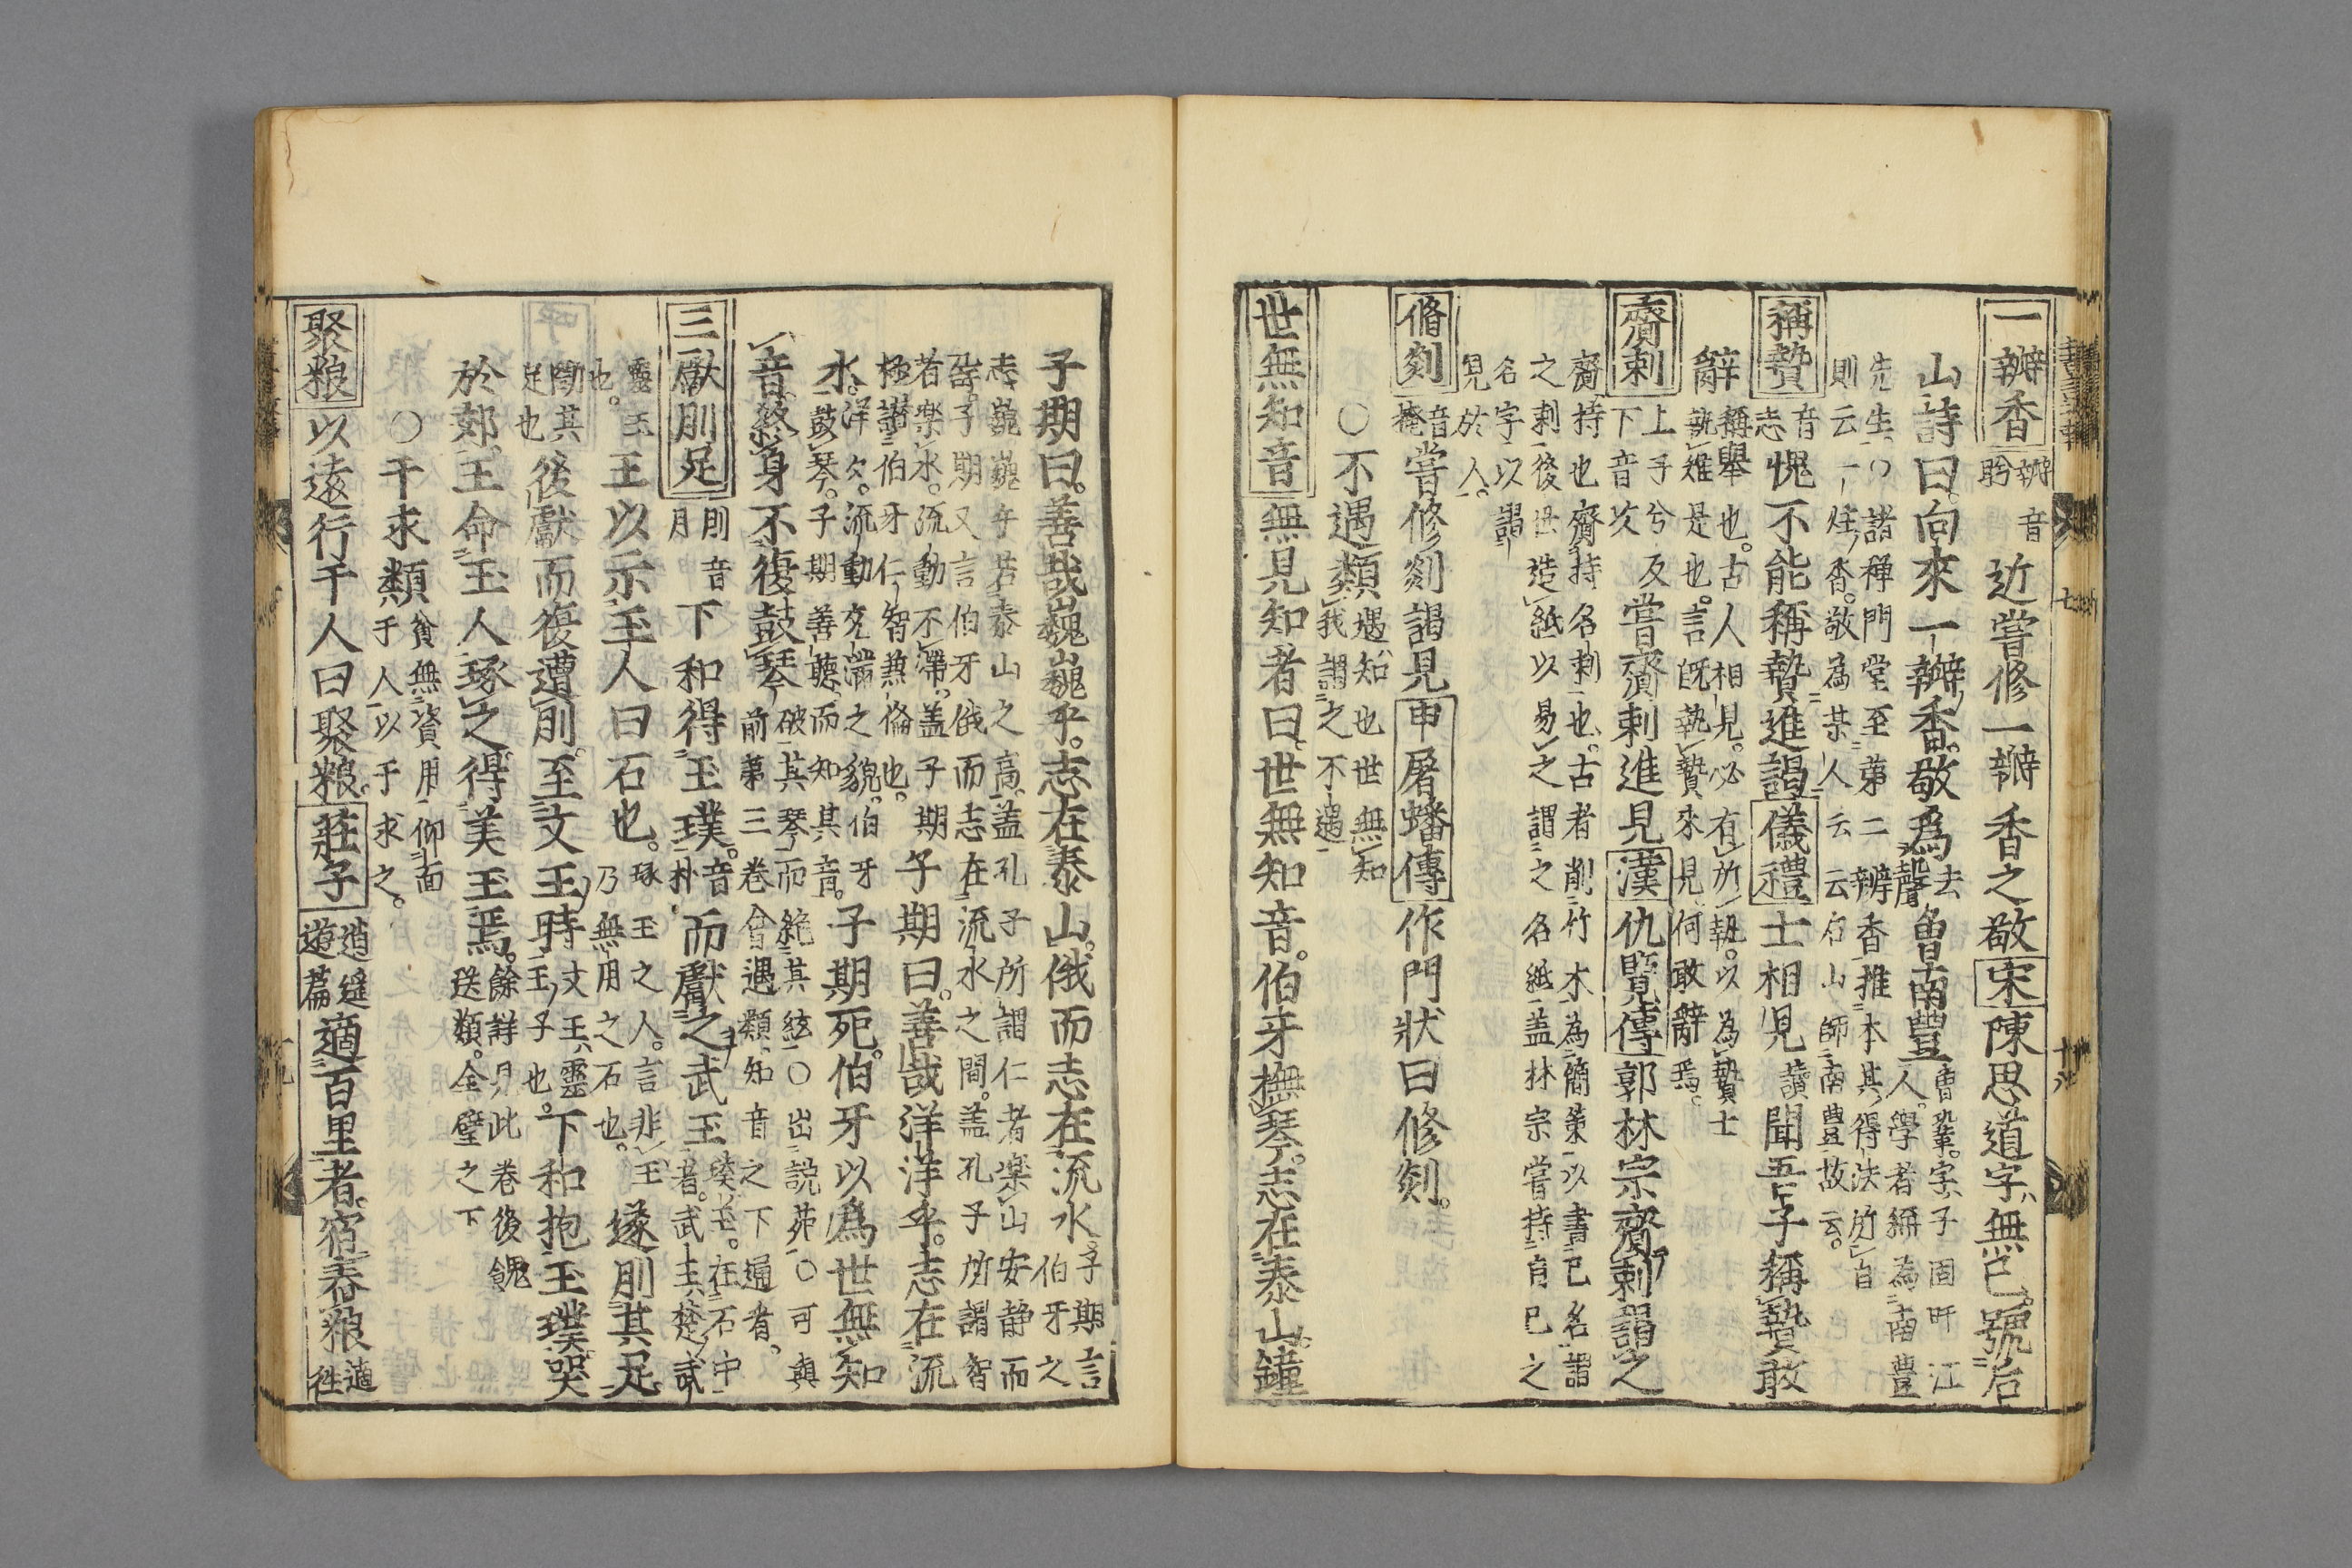 一瓣香 瓣音盼 近嘗修一瓣香之敬 宋 陳思道字無己號后
山詩曰向來一瓣香敬為 去聲 魯南豐 曾鞏字子固盱江人學者稱為南豐
先生〇諸禪門堂至第二瓣香推本其得法所自則云一炷香敬為某人云云后山師南豐故云
稱贄 音志 愧不能稱贄進謁 儀禮 士相見 讀 聞吾子稱贄敢
辭 稱舉也古人相見必有所執以為贄士執雉是也言既執贄來見何敢辭焉
齎刺 上手兮反下音次 嘗齎刺進見 漢 仇覽傳 郭林宗齎刺謁之
齎持也齎持名刺也古者削竹木為簡策以書己名謂之刺後世造紙以易之謂之名紙蓋林宗嘗持自己之
名字以謁見於人
脩剡 音掩 嘗修剡謁見 申屠蟠傳 作門狀曰修剡
〇不遇類 遇知也世無知我謂之不遇
世無知音 無見知者曰世無知音伯牙撫琴志在泰山鐘
子期曰善哉巍巍乎志在泰山俄而志在流水 子期言伯牙之
志巍巍乎若泰山之高蓋孔子所謂仁者樂山安靜而
子期又言伯牙俄而志在流水之間蓋孔子所謂智
者樂水流動不滯蓋子期極讚伯牙仁智兼備也 子期曰善哉洋洋乎志在流
水 洋久流動充滿之貌伯牙鼓琴子期善聽而知其音 子期死伯牙以為世無知
音終身不復鼓琴 破其琴而絕其絃〇出說苑〇可與前第三卷會遇類知音之下通看
三獻刖足 刖音月 卞和得玉璞 音朴 而獻之武王 葵玉在石中者武王楚武
王以示玉人曰石也 琢玉之人言非玉乃無用之石也 遂刖其足
斷其足也 後獻而復遭刖至文王時 文王武王子也 卞和抱玉璞哭
於郊王命玉人琢之得美玉焉 餘詳見此卷後餽送類全璧之下
〇干求類 貧無資用仰面于人以干求之
聚粮 以遠行干人曰聚粮 莊子 逍遙遊篇 適百里者宿舂粮 適往